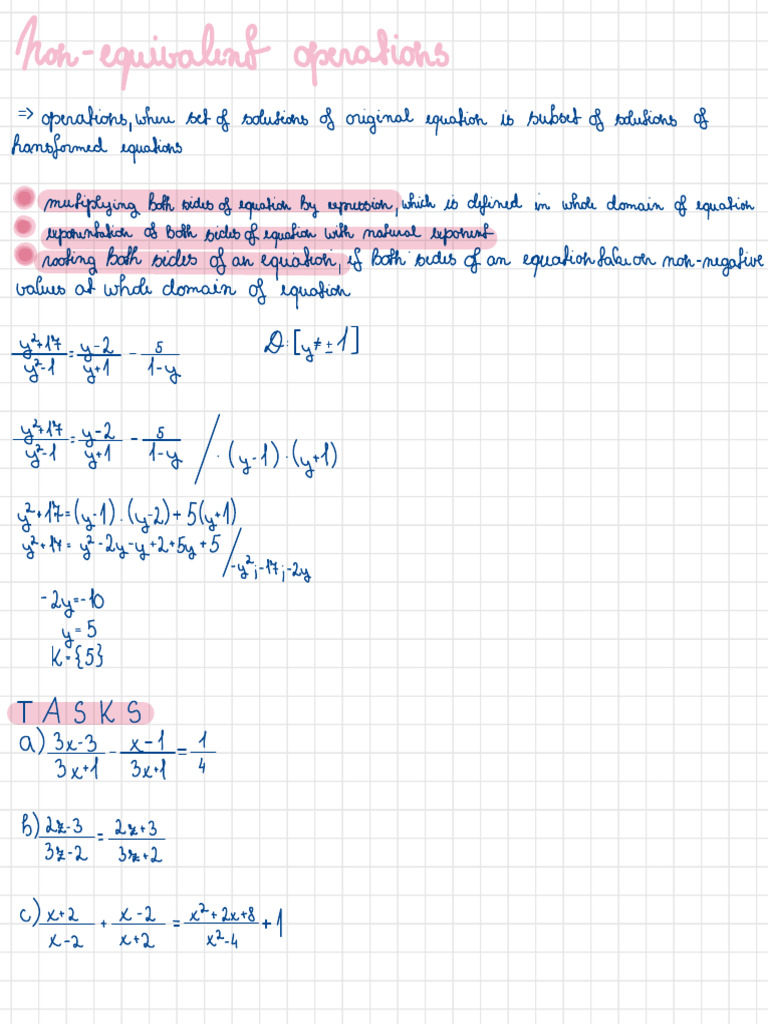 Non-equivalent operations
⇒ operations, where set of solutions of original equation is subset of solutions of
transformed equations
multiplying both sides of equation by expression, which is defined in whole domain of equation
exponentation of both sides of equation with natural exponent
rooting both sides of an equation, if both sides of an equation take on non-negative
values at whole domain of equation
(y²+17)/(y²-1) = (y-2)/(y+1) - 5/(1-y) D: [y ≠ ± 1]
(y²+17)/(y²-1) = (y-2)/(y+1) - 5/(1-y) / ·(y-1)·(y+1)
y²+17=(y-1).(y-2)+5(y+1)
y²+17= y²-2y-y+2+5y+5 / -y²;-17;-2y
-2y=-10
y=5
K={5}
TASKS
a) (3x-3)/(3x+1) - (x-1)/(3x+1) = 1/4
b) (2z-3)/(3z-2) = (2z+3)/(3z+2)
c) (x+2)/(x-2) + (x-2)/(x+2) = (x²+2x+8)/(x²-4) + 1